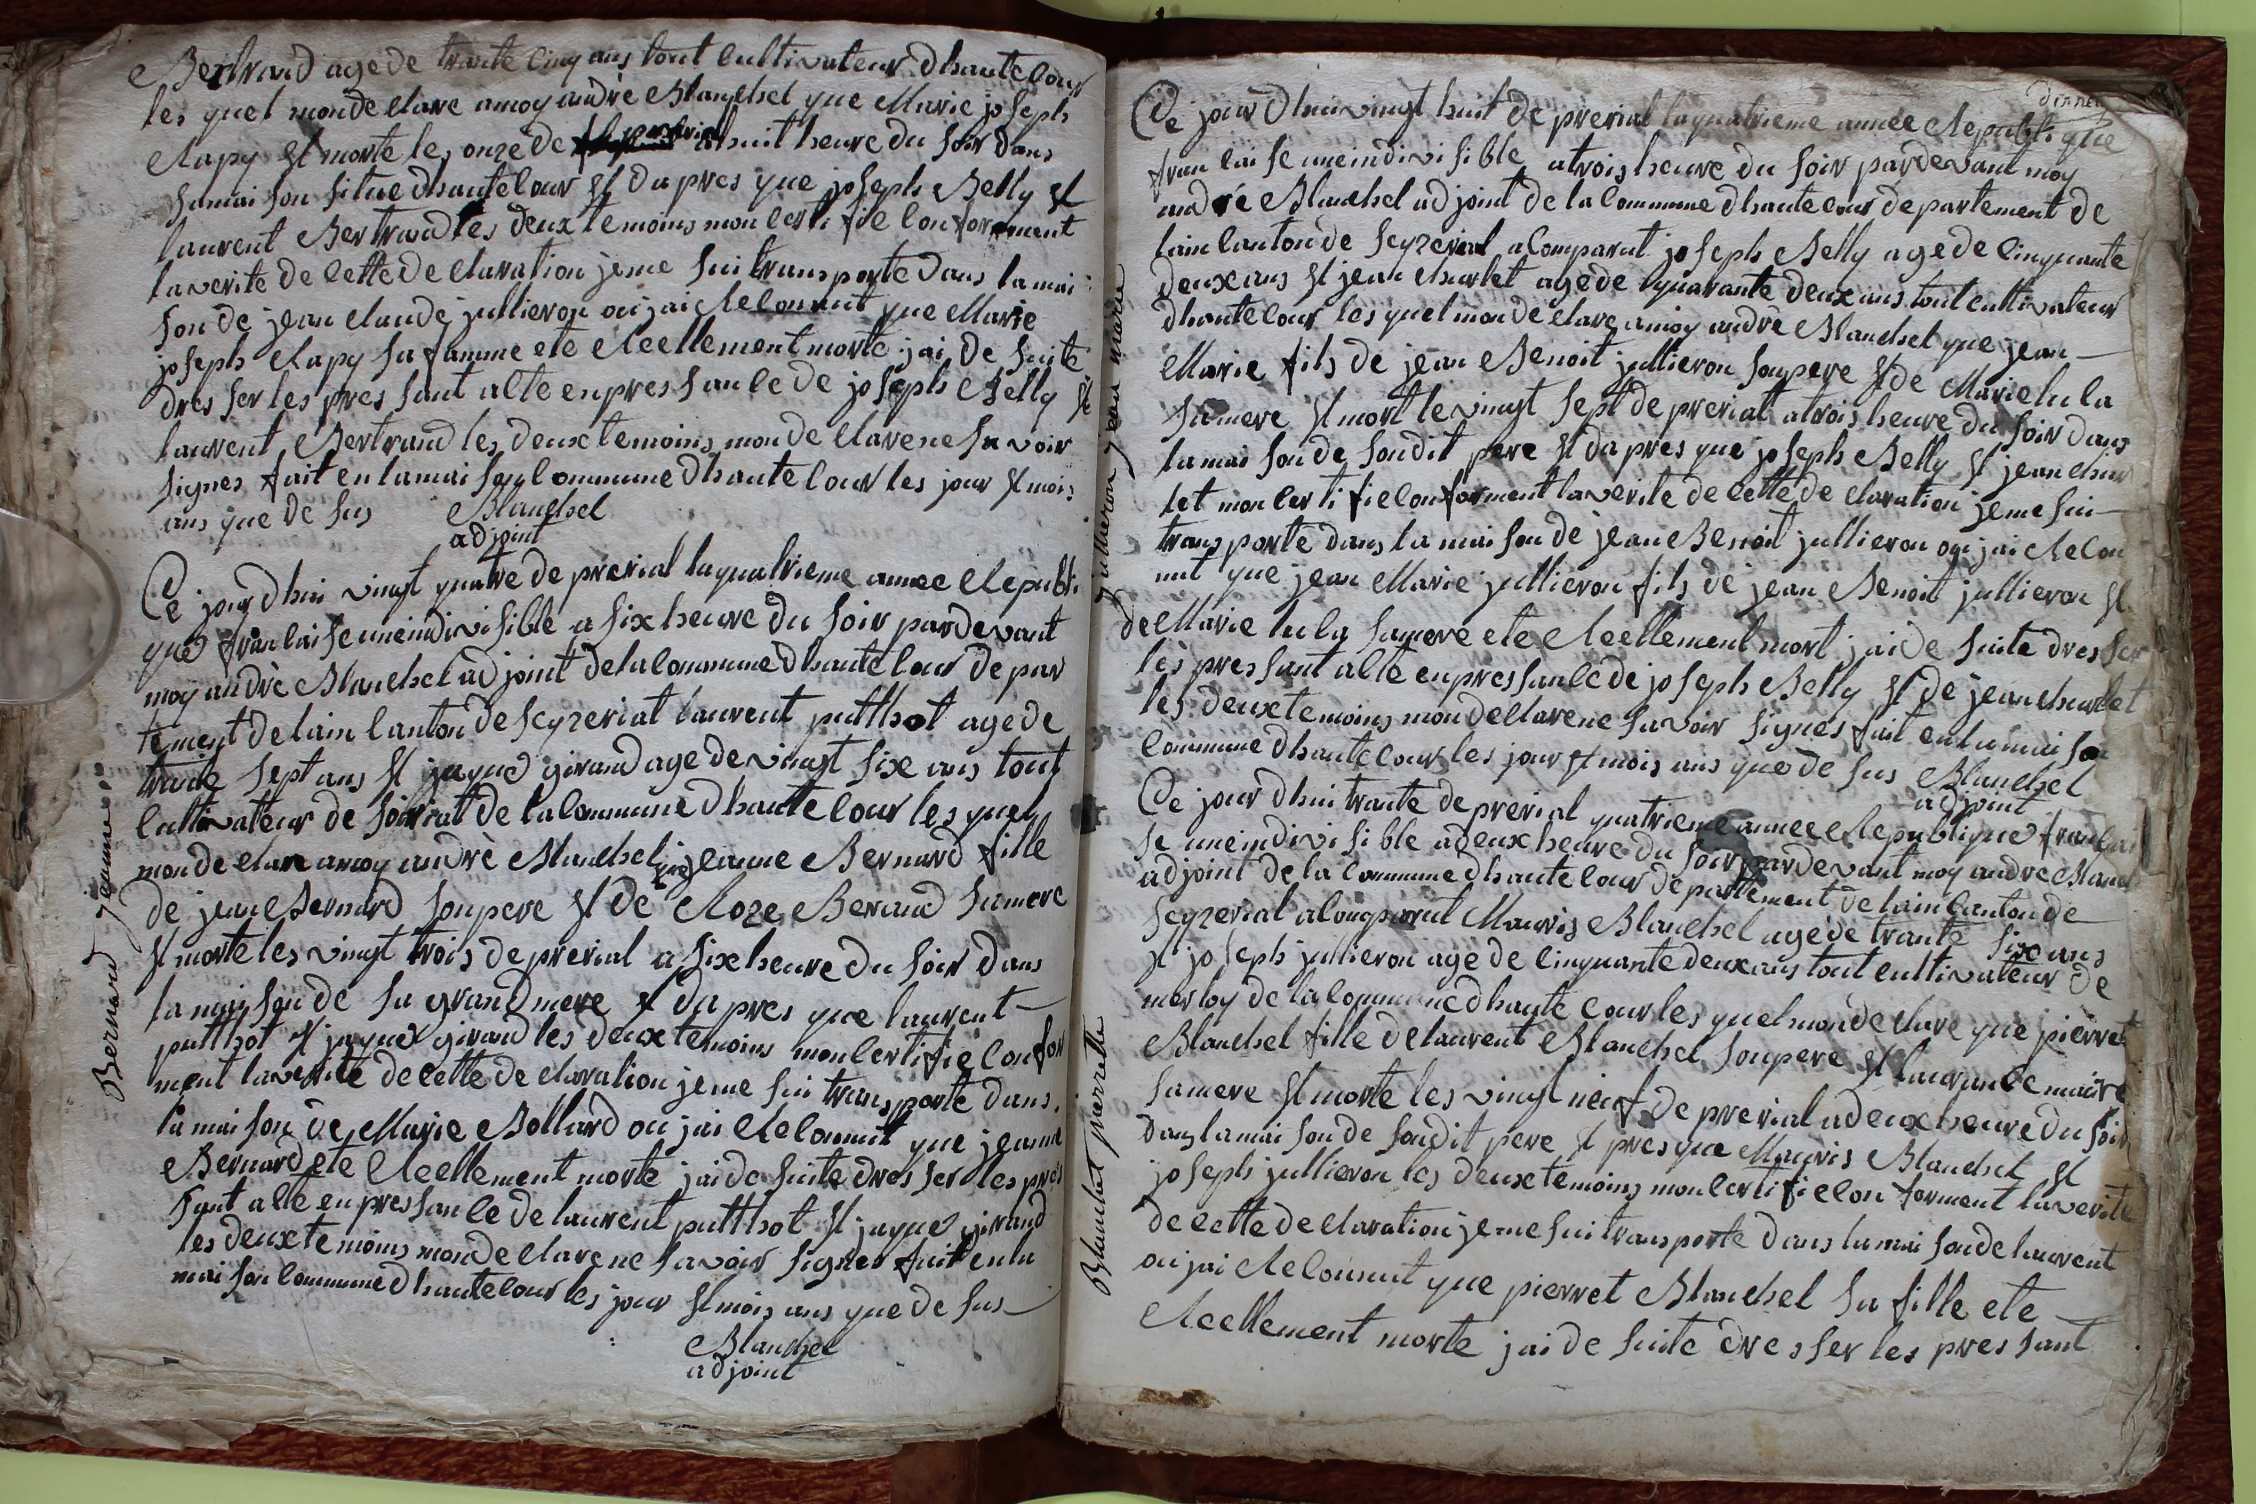 Bertrand age de trante cinq ans tout cultivateur dhautecour
les quel monde clare amoy andrè Blanchet que Marie joseph
Rapy st morte les onze de prerial a huit heure du soir dans
sa mai son situe dhautecour st da pres que joseph Belly st
laurent Bertrand les deux temoins mon certi fie con forment
la verite de cette de claration je me sui transporte dans la mai
son de jean claude jullieron ou jai Reconnut que Marie
joseph Rapy sa famme ete Reellement morte jai de suite
dres ser les pres sant acte en pres sance de joseph Belly st
laurent Bertrand les deux temoins mon de clare ne sa voir
signes fait en la mai son commune dhautecour les jour st mois
ans que de sus Blanchet
adjoint
Ce jour dhui vingt quatre de prerial la quatrieme annee Republi
que francaise une indivisible a six heure du soir pardevant
moy andrè Blanchet ad joint de la commune dhautecour de par
tement de lain canton de seyzeriat laurent putthot age de
trante sept ans st jaque girand age de vingt six ans tout
cultivateur de soiriat de la commune dhautecour les quel
monde clare amoy andrè Blanchet que jeanne Bernard fille
de jean Bernard son pere st de Roze Beraud sa mere
st morte les vingt trois de prerial a six heure du soir dans
la mai son de sa grand mere st da pres que laurent
putthot st jaque girand les deux temoins mon certifie con for
ment la verite de cette de claration je me sui transporte dans
la mai son de Marie Bollard ou jai Reconnut que jeanne
Bernard ete Reellement morte jai de suite dres ser les pres
sant acte en pres sance de laurent putthot st jaque girand
les deux temoins monde clare ne sa voir signes fait en la
mai son commune dhautecour les jour st mois ans que de sus
Blanchet
adjoint
Bernard jeanne
Ce jour dhui vingt huit de prerial la quatrieme annee Republi que
fran cai se une indivi sible a trois heure du soir pardevant moy
andrè Blanchet ad joint de la commune dhautecour departement de
lain canton de seyzeriat a comparut joseph Belly age de cinquante
deux ans st jean churlet age de quarante deux ans tout cultivateur
dhautecour les quel mon de clare amoy andre Blanchet que jean
Marie fils de jean Benoit jullieron son pere st de Marie lu la
sa mere st mort le vingt sept de prerial a trois heure du soir dans
la mai son de son dit pere st da pres que joseph Belly st jean chur
let mon certi fie con forment la verite de cette de claration je me sui
trans porte dans la mai son de jean Benoit jullieron ou jai Recon
nut que jean Marie jullieron fils de jean Benoit jullieron st
de Marie lu la sa mere ete Reellement mort jai de suite dres ser
les pres sant acte en pres sance de joseph Belly st de jean churlet
les deux temoins mon de clare ne sa voir signes fait en la mai son
commune dhautecour les jour st mois ans que de sus Blanchet
adjoint
jullieron jean marie
Ce jour dhui trante de prerial quatrieme annee Republique francai
se une indivi sible a deux heure du soir par devant moy andre Blanc
adjoint de la commune dhautecour de partement de lain canton de
seyzeriat a comparut Mauris Blanchet age de trante six ans
st joseph jullieron age de cinquante deux ans tout cultivateur de
merloy de la commune dhaute cour les quel monde clare que pierret
Blanchet fille de laurent Blanchet son pere st laurance maire
sa mere st morte les vingt neuf de prerial a deux heure du soir
dans la mai son de son dit pere st pres que Mauris Blanchet st
joseph jullieron les deux temoins mon certi fie con forment la verite
de cette de claration je me sui transporte dans la mai son de laurent
ou jai Reconnut que pierret Blanchet sa fille ete
Reellement morte jai de suite dres ser les pres sant
Blanchet pierrette